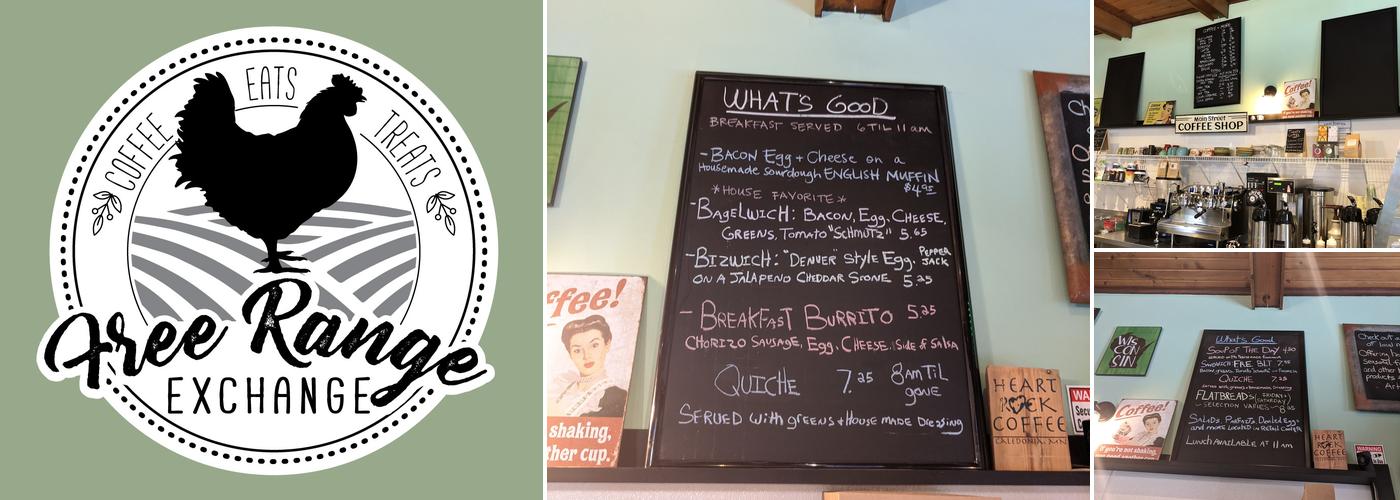 COFFEE
EATS
TREATS
Free Range
EXCHANGE
WHAT'S GOOD
BREAKFAST SERVED 6 TIL 11 am
- BACON Egg + Cheese on a
Housemade sourdough ENGLISH MUFFIN
$4.95
*HOUSE FAVORITE*
- BAGELWICH: BACON, Egg, CHEESE,
GREENS, Tomato "SCHMUTZ" 5.65
- BIZWICH: "DENVER" Style Egg, PEPPER JACK
ON A JALAPENO CHEDDAR SCONE 5.25
- BREAKFAST BURRITO 5.25
CHORIZO SAUSAGE, Egg, CHEESE. Side of Salsa
QUICHE 7.25 8am TIL gone
SERVED with greens + House made Dressing
ffee!
shaking,
ther cup.
HEART
ROCK
COFFEE
CALEDONIA, MN
WA
Secu
COFFEE + MORE
Coffee!
Main Street
COFFEE SHOP
WIS
CON
SIN
What's Good
SOUP OF THE DAY 4.50
SANDWICH F.R.E. BLT 7.95
QUICHE 7.25
FLATBREADS (FRIDAY + SATURDAY)
- SELECTION VARIES - 8.95
SALADS, Parfaits, Deviled Eggs
and more LOCATED IN RETAIL COOLER
LUNCH AVAILABLE AT 11 AM
Coffee!
If you're not shaking,
HEART
ROCK
COFFEE
WARNING
Check out o
of local
Offering
Seasonal
and other
products